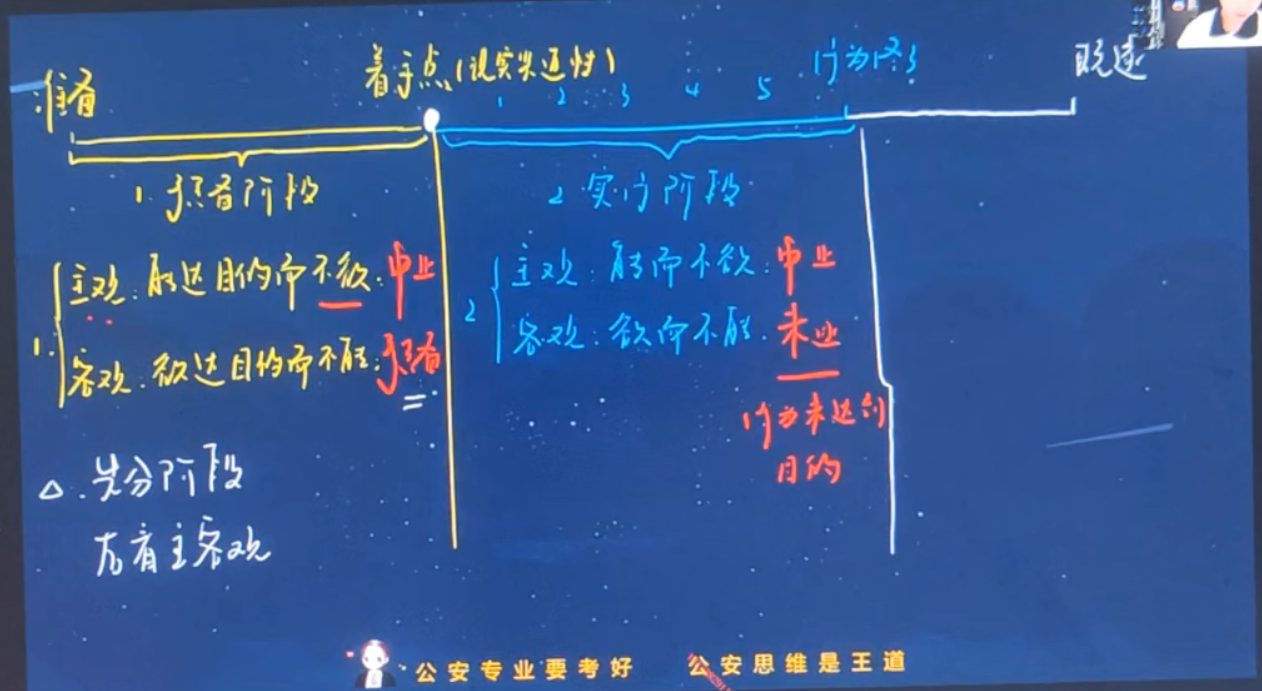 准备
着手点(现实紧迫性)
1 2 3 4 5
行为终了
既遂
1.预备阶段
2 实行阶段
1.
主观:能达目的而不欲:中止
客观:欲达目的而不能:预备
2
主观:能而不欲:中止
客观:欲而不能.未遂
行为未达到
目的
△.先分阶段
后看主客观
公安专业要考好 公安思维是王道